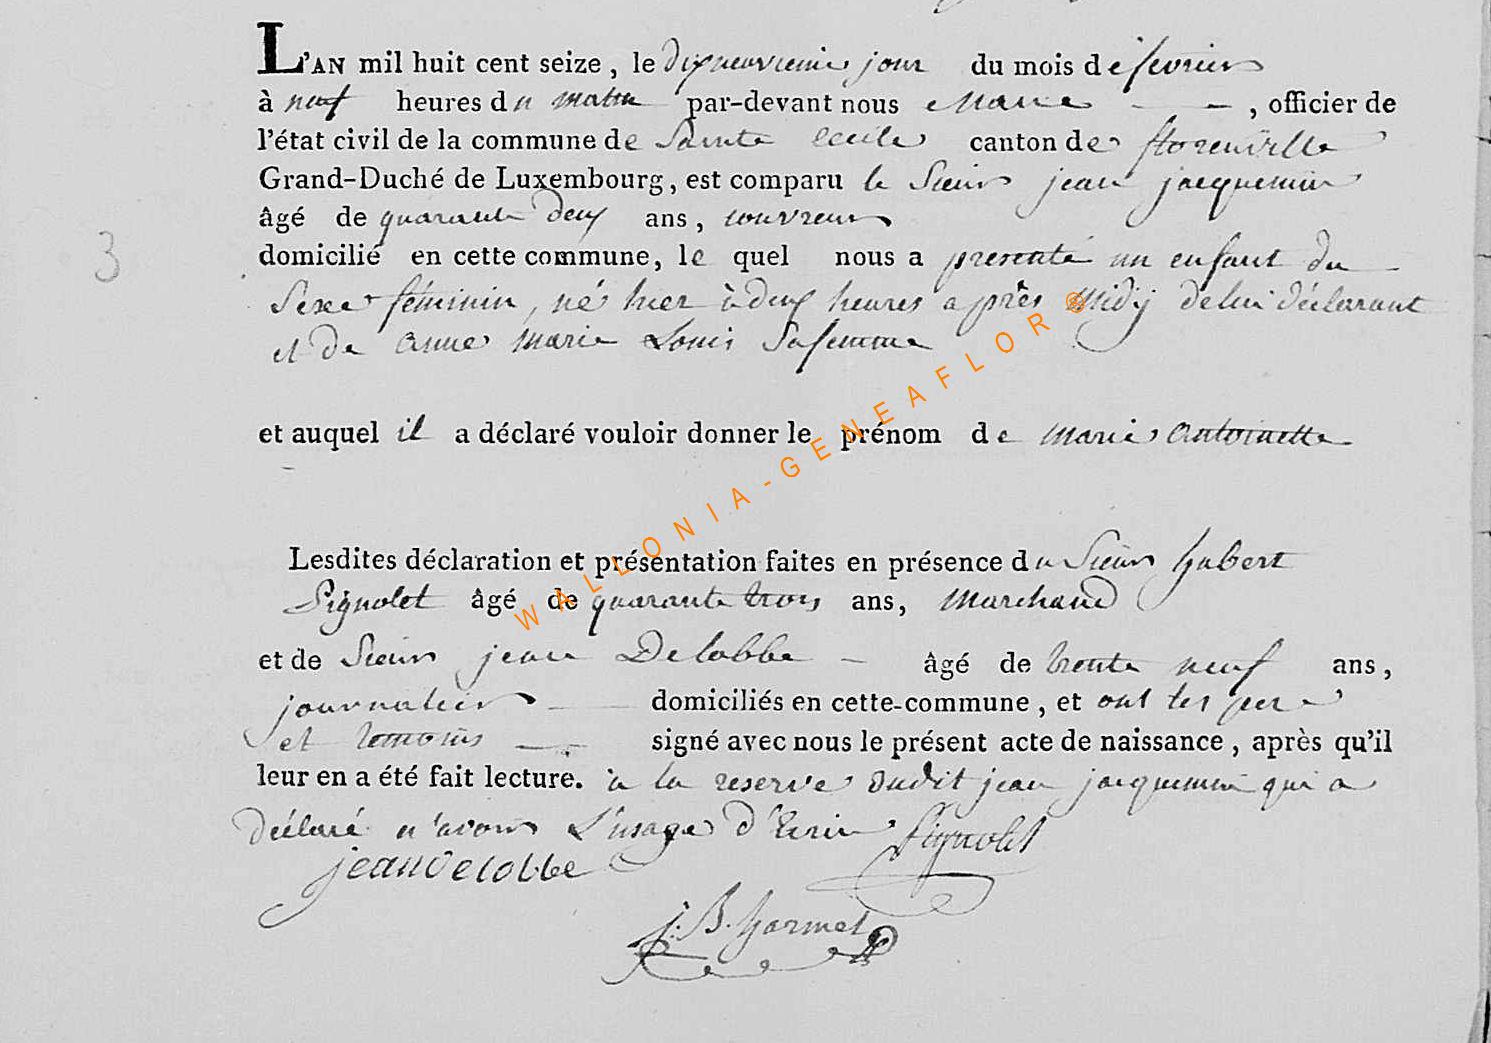 L'AN mil huit cent seize, le dixneuvieme jour du mois de fevrier
à neuf heures du matin par-devant nous Maire — —, officier de
l'état civil de la commune de Sainte Cecile canton de florenville
Grand-Duché de Luxembourg, est comparu le Sieur jean jacquemin
âgé de quarante deux ans, couvreur
3
domicilié en cette commune, le quel nous a presenté un enfant du
Sexe féminin, né hier à deux heures après Midÿ de lui déclarant
et de anne Marie Louis Sa femme
et auquel il a déclaré vouloir donner le prénom de Marie Antoinette
WALLONIA-GENEAFLOR ®
Lesdites déclaration et présentation faites en présence du Sieur hubert
Pignolet âgé de quarante trois ans, Marchand
et de Sieur jean Delobbe — âgé de trente neuf ans,
journalier — domiciliés en cette-commune, et ont les pere
et temoins — signé avec nous le présent acte de naissance, après qu'il
leur en a été fait lecture. à la reserve dudit jean jacquemin qui a
déclaré n'avoir L'usage d'Ecrire
jean Delobbe Pignolet
j: B. hormel